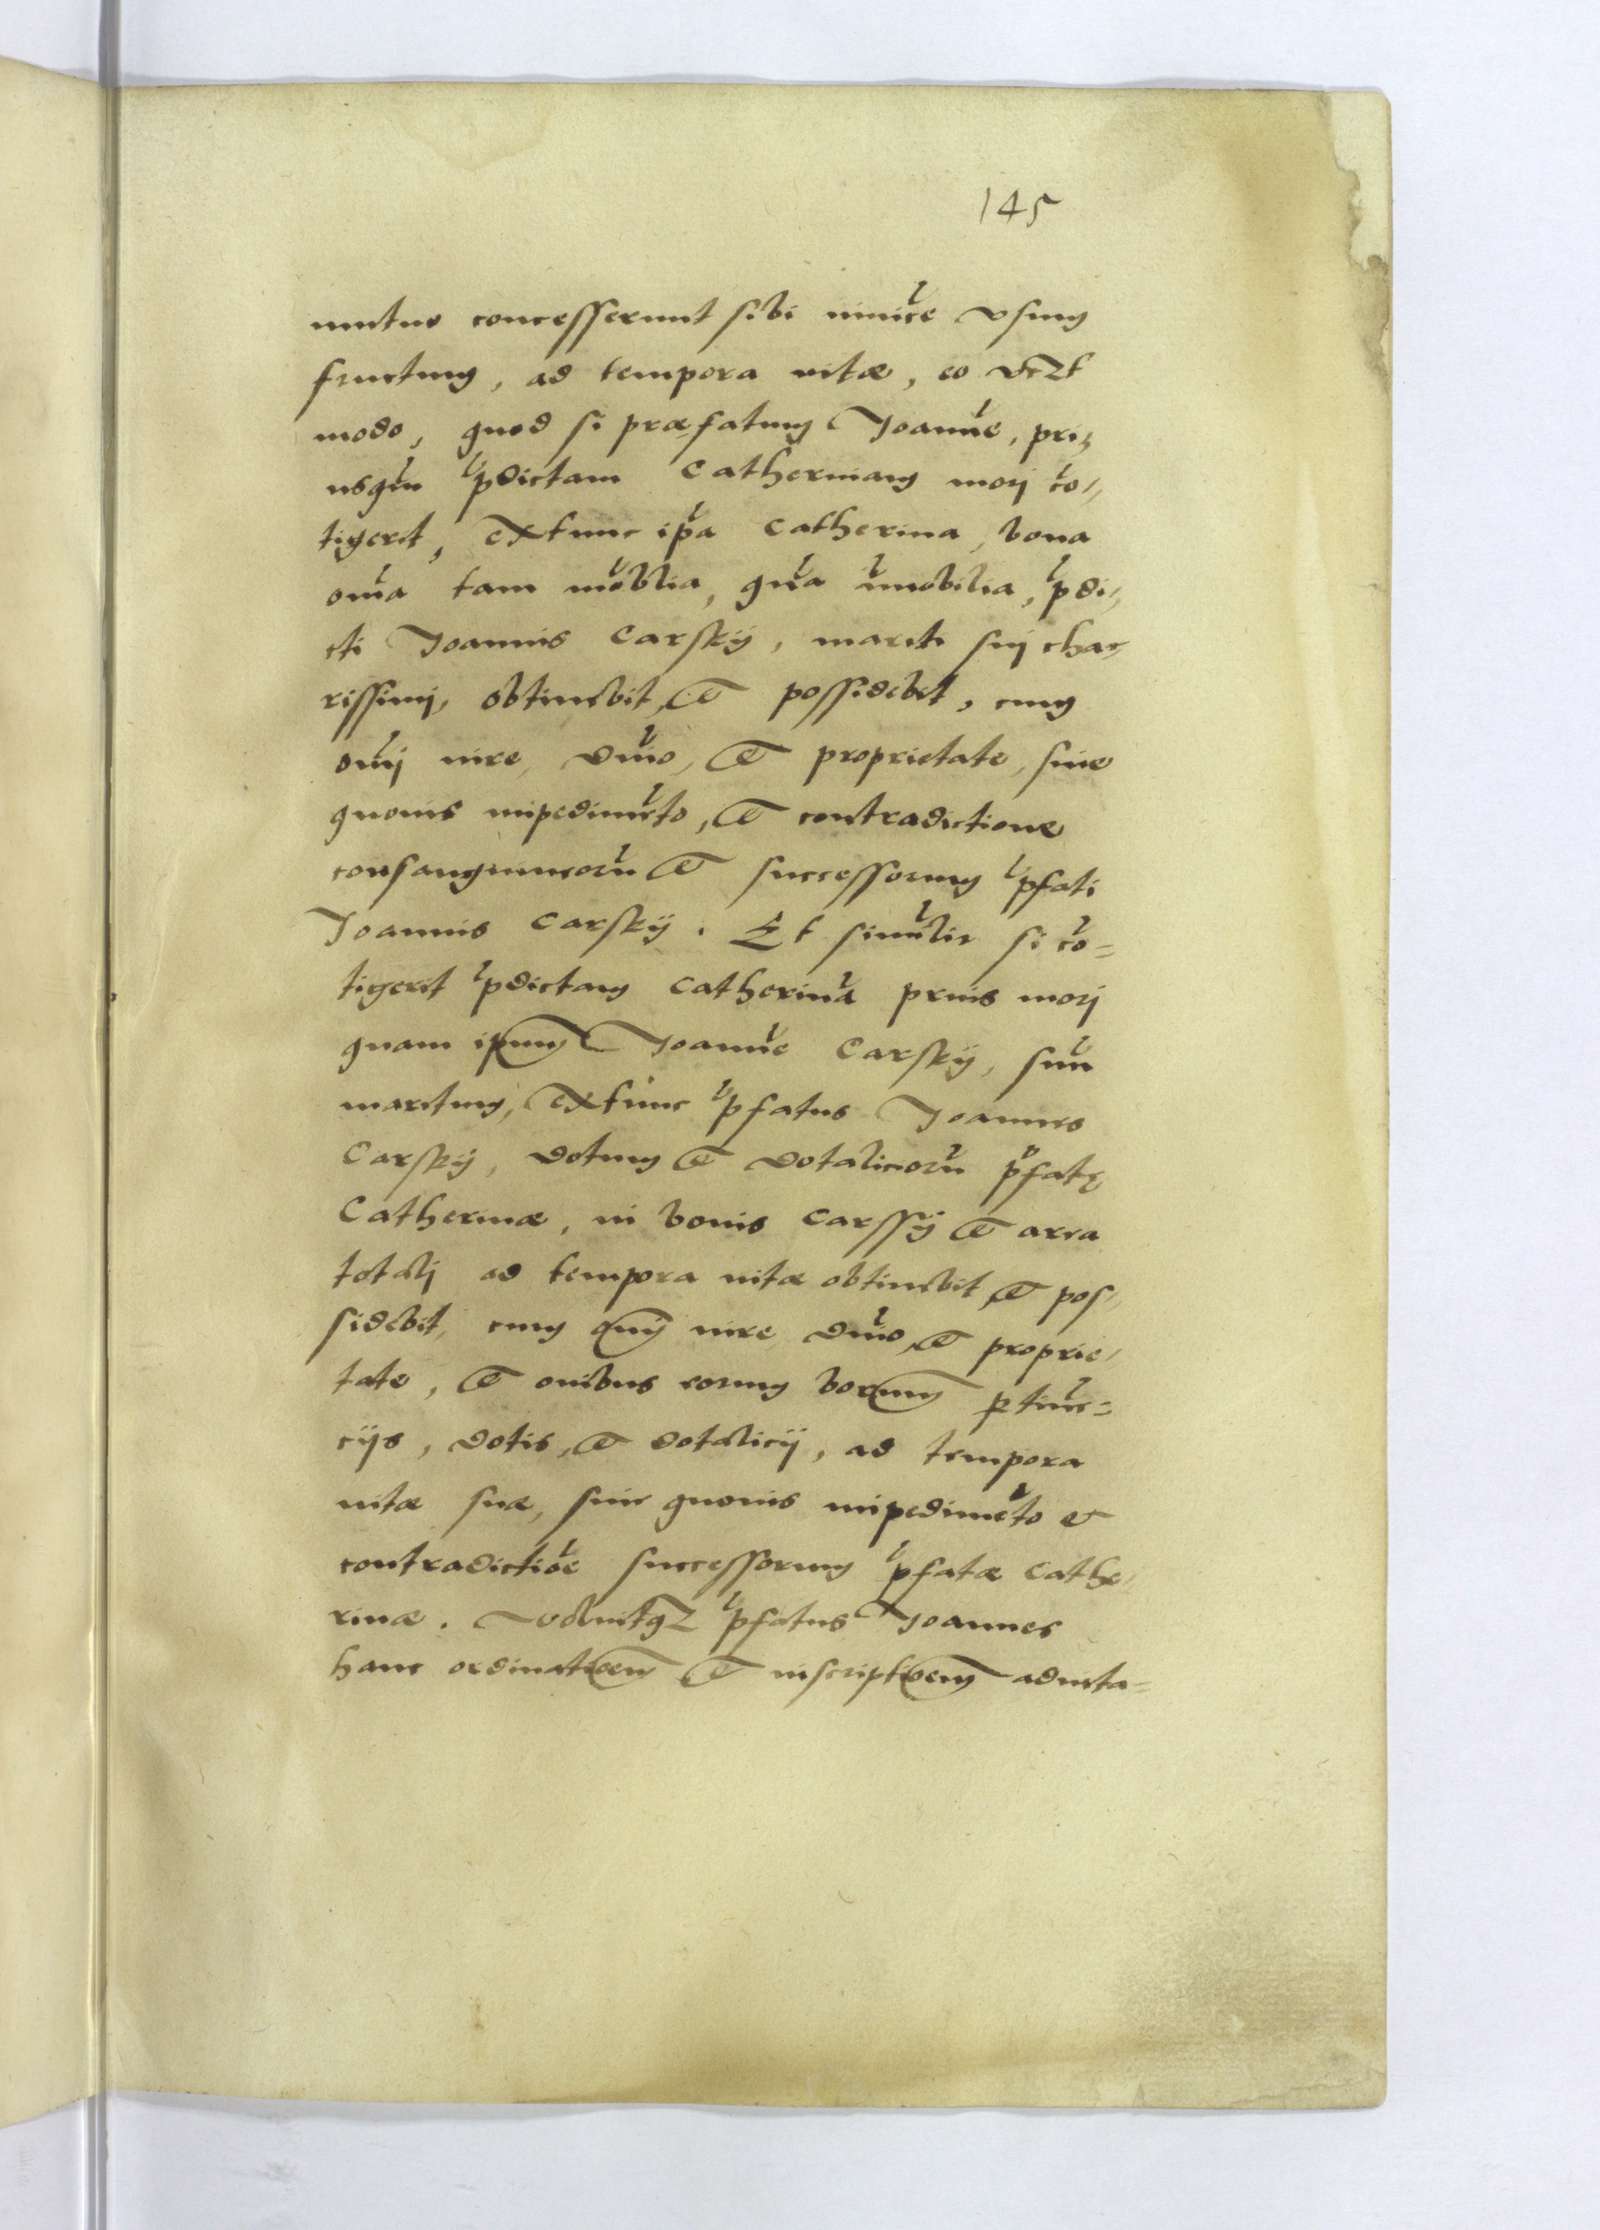 145
mutuo concesserunt sibi inuice̅ vsum
fructum, ad tempora vitæ, eo vczt
modo, quod si præfatum Joanne̅, pri-
usqua̅ p̅dictam Catherinam morj co̅-
tigerit, extunc ip̅a Catherina, bona
om̅ia tam mo̅blia, qua̅ im̅obilia, p̅di-
cti Joannis Carskÿ, mariti suj cha-
rissimj, obtinebit, et possidebit, cum
om̅j iure, dn̅io, et proprietate, sine
quouis impedime̅to, et contradictione
consanguineoru̅ et successorum p̅fati
Joannis Carskÿ. Et simil̅r si co̅-
tigerit p̅dictam Catherina̅ prius morj
quam ipsum Joanne̅ Carskÿ, suu̅
maritum, extunc p̅fatus Joannes
Carskÿ, dotum et dotalicioru̅ p̅fatę
Catherinæ, in bonis Carssÿ et arra
totalj ad tempora vitæ obtinebit et pos-
sidebit, cum om̅j iure dn̅io, et proprie-
tate, et om̅ibus eorum bonorum p̱tine̅-
cijs, dotis, et dotalicij, ad tempora
vitæ suæ, sine quouis impedime̅to et
contradictio̅e successorum p̅fatæ Cathe-
rinæ. Voluitqz p̅fatus Joannes
hanc ordinatioem et inscriptioem aduita-